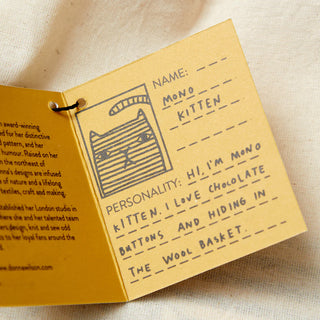 n award-winning
ed for her distinctive
d pattern, and her
humour. Raised on her
n the northeast of
nna's designs are infused
e of nature and a lifelong
textiles, craft and making.
stablished her London studio in
here she and her talented team
ers design, knit and sew odd
s to her loyal fans around the
www.donnawilson.com
NAME:
MONO
KITTEN
PERSONALITY: HI, I'M MONO
KITTEN. I LOVE CHOCOLATE
BUTTONS AND HIDING IN
THE WOOL BASKET.